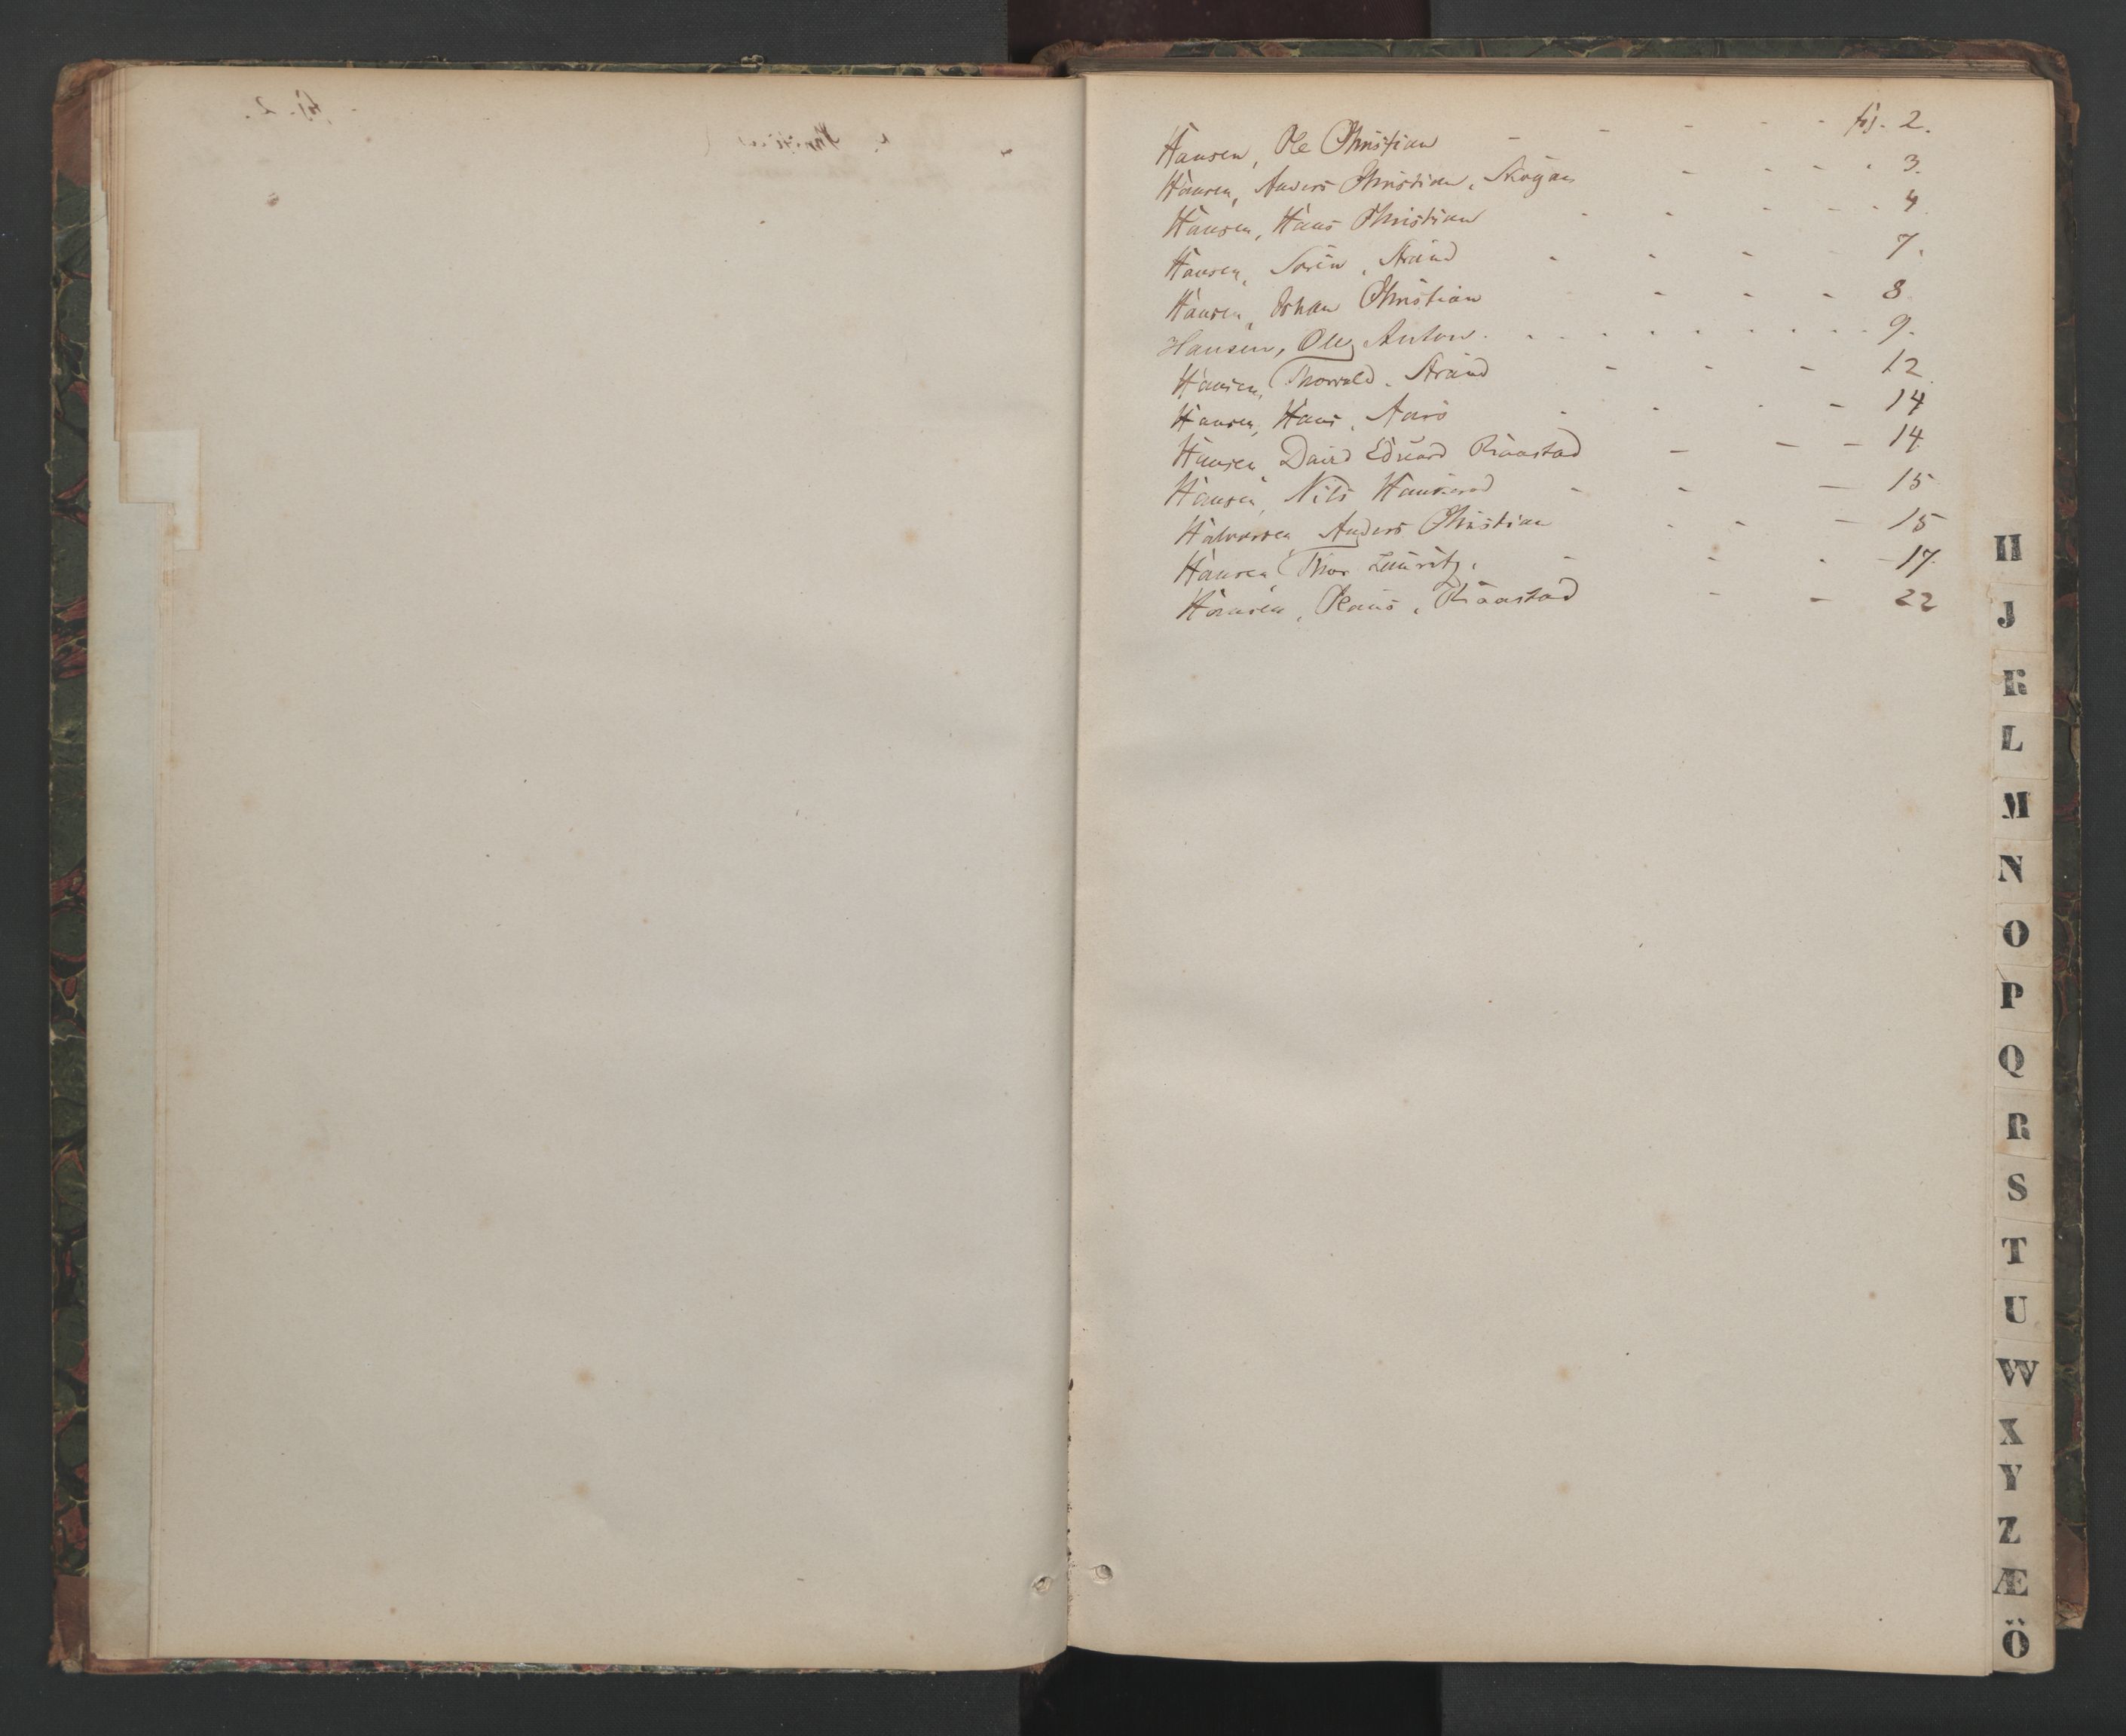 Hansen, Ole Christian - - - - - fol. 2.
Hansen, Anders Christian, Skogan - - - - 3.
Hansen, Hans Christian - - - - - 4
Hansen, Sørin, Strand - - - 7.
Hansen, Johan Christian - - - 8
Hansen, Ole Anton. - - - - - - - - - 9.
Hansen, Thorvald. Strand - - - 12.
Hansen, Hans, Aarø - - - - 14
Hansen David Edvard Raastad - - - 14.
Hansen, Nils - - — 15
Halvorsen Anders Christian - - — 15
Hansen Thor Lauritz. - - - - 17.
Hansen, Klaus, Raastad - - 22
H
J
K
L
M
N
O
P
Q
R
S
T
U
W
X
Y
Z
Æ
Ö